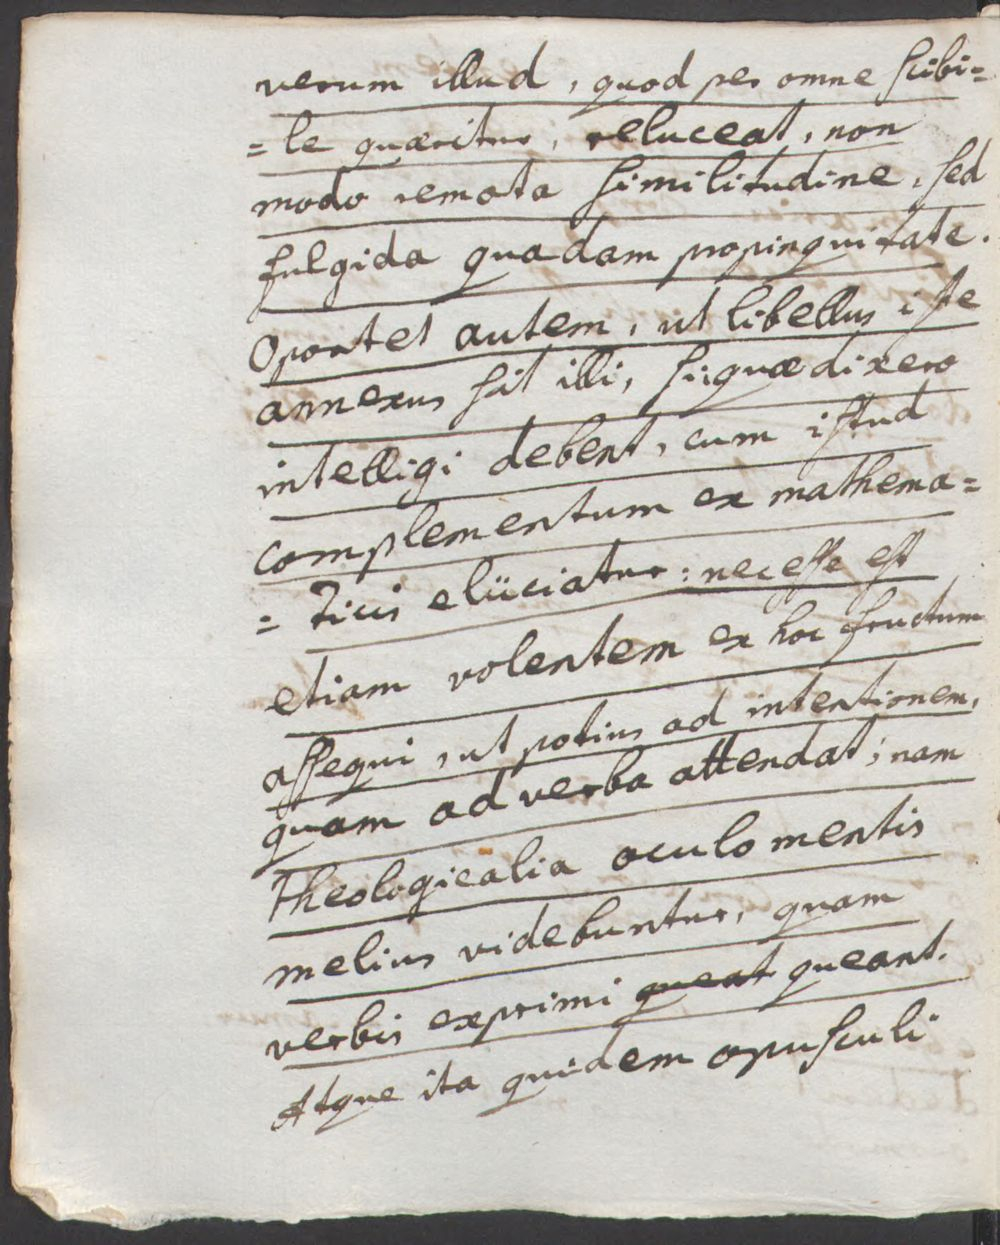 verum illud, quod per omne scibi=
=le quæritur, reluceat, non
modo remota similitudine, sed
fulgida quadam propinquitate.
Oportet autem, ut libellus iste
annexus sit illi, si quæ dixero
intelligi debent, cum istud
complementum ex mathema=
=ticis elüciatur: necesse est
etiam volentem ex hoc fructum
assequi, ut potius ad intentionem,
quam ad verba attendat; nam
Theologicalia oculo mentis
melius videbuntur, quam
verbis exprimi queat queant.
Atque ita quidem opusculi